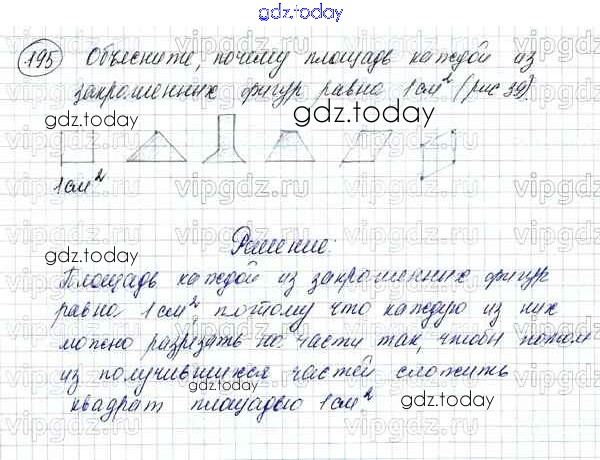 gdz.today
195 Объясните, почему площадь каждой из
закрашенных фигур равна 1 см² (рис 39).
gdz.today
gdz.today
1 см²
Решение:
gdz.today
Площадь каждой из закрашенных фигур
равна 1 см², потому что каждую из них
можно разрезать на части так, чтобы потом
из получившихся частей сложить
квадрат площадью 1 см².
gdz.today
gdz.today
vipgdz.ru